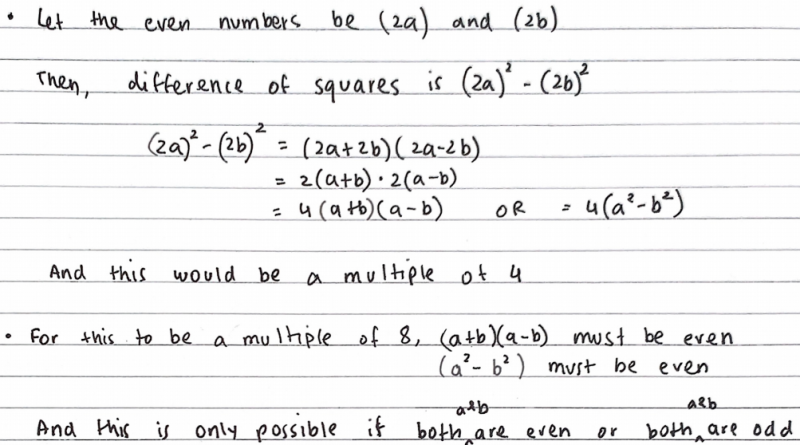 • Let the even numbers be (2a) and (2b)
Then, difference of squares is (2a)² - (2b)²
(2a)² - (2b)² = (2a+2b)(2a-2b)
= 2(a+b) · 2(a-b)
= 4(a+b)(a-b) OR = 4(a²-b²)
And this would be a multiple of 4
• For this to be a multiple of 8, (a+b)(a-b) must be even
(a²-b²) must be even
And this is only possible if both a&b are even or both a&b are odd